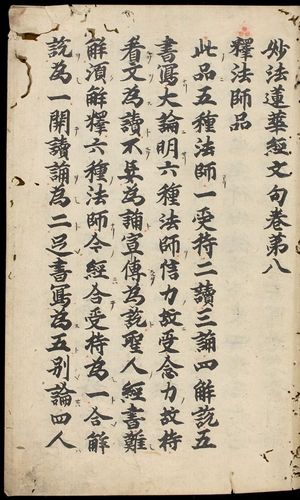 妙法蓮華經文句卷第八
釋法師品
此品五種法師一受持二讀三誦四解說五
書寫大論明六種法師信力故受念力故持
看文為讀不忘為誦宣傳為說聖人經書難
解須解釋六種法師今經合受持為一合解
說為一開讀誦為二足書寫為五別論四人